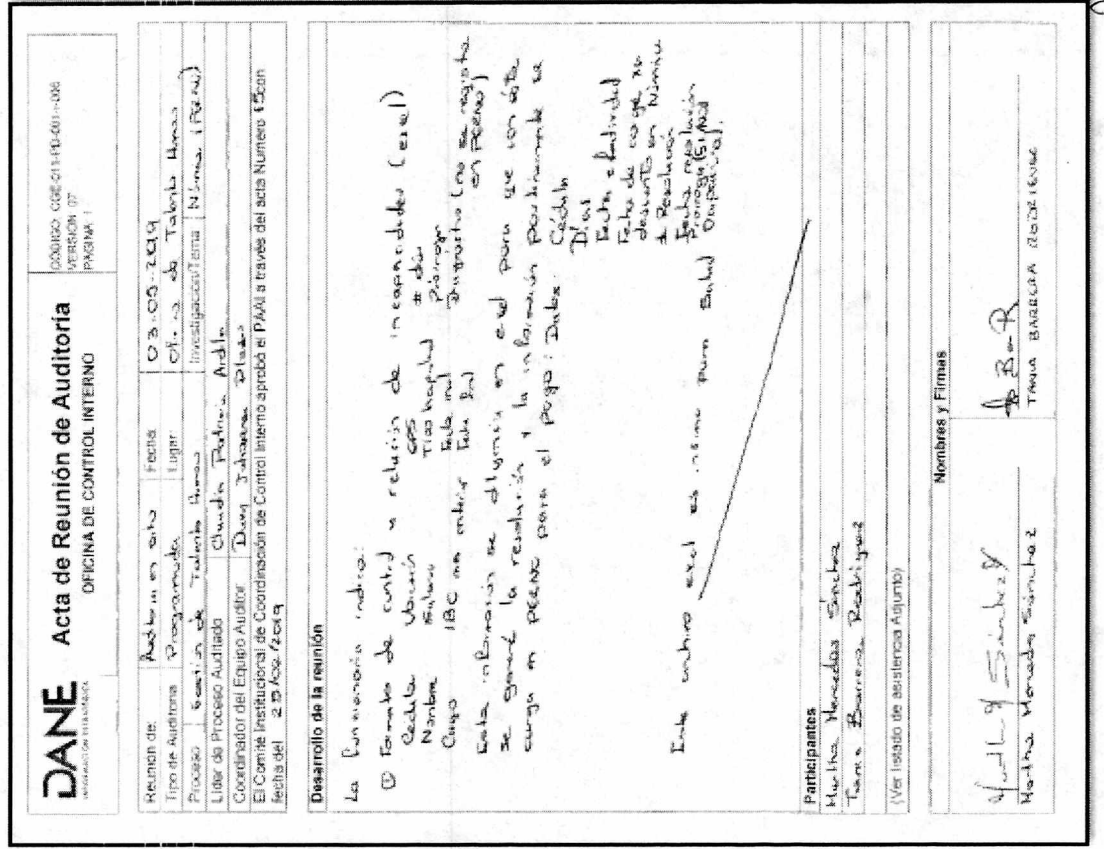 DANE
INFORMACIÓN ESTADÍSTICA
Acta de Reunión de Auditoría
OFICINA DE CONTROL INTERNO
CODIGO: CGE-011-PD-001-f-006
VERSIÓN: 07
PAGINA: 1
Reunion de: Auditoria en sitio Fecha: 03-09-2019
Tipo de Auditoria Programada Lugar: Talento Humano
Proceso Gestión de Talento Humano Investigación/Tema Nómina (PERNO)
Lider de Proceso Auditado Claudia Patricia Ardila
Coordinador del Equipo Auditor
El Comité Institucional de Coordinación de Control Interno aprobó el PAAI a través del acta Numero 15 con
fecha del
Desarrollo de la reunión
La funcionaria indica:
① Formato de control y relación de incapacidades (exel)
Cédula Ubicación EPS # día
Nombre Sueldo Tipo hospital Prórroga
Cargo IBC mes anterior Fecha inicial Diagnostico (no se registra
Fecha en PERNO)
Esta información se diligencia en exel para que con ésta
se genere la resolución y la información posteriormente se
carga en PERNO para el pago: Datos: Cédula
Días
Fecha efectividad
Fecha de carga
descuento en Nómina
# Resolución
Fecha resolución
Prorroga (SI/NO)
Ocupacional.
Este archivo exel es insumo para Salud
Participantes
Martha Mercedes Sánchez
Tania Barrera Rodriguez
(Ver listado de asistencia Adjunto)
Nombres y Firmas
Martha Mercedes Sánchez
TANIA BARRERA RODRIGUEZ